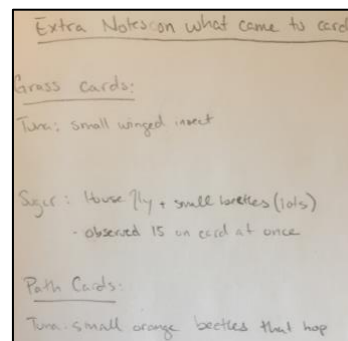 Extra Notes on what came to card
Grass Cards:
Tuna: small winged insect
Sugar: House fly + small beetles (lots)
- observed 15 on card at once
Path Cards:
Tuna: small orange beetles that hop